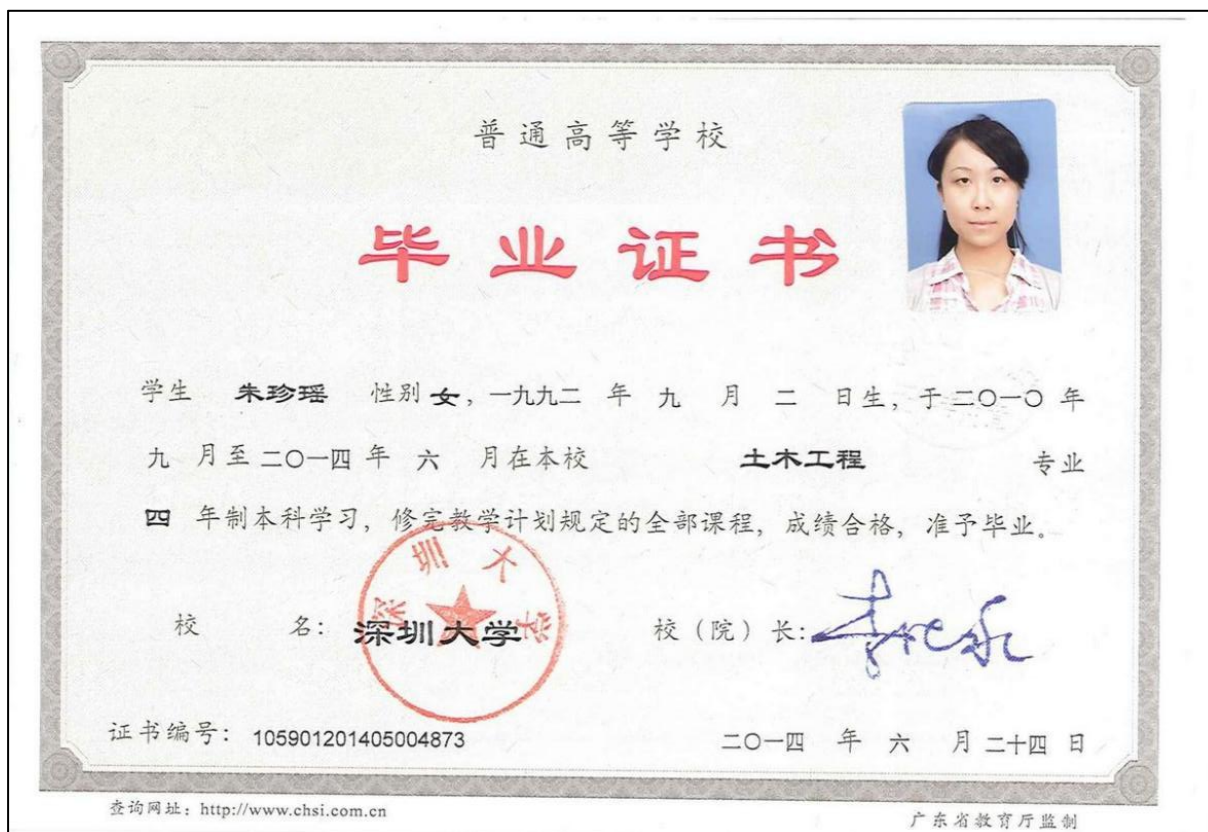 普通高等学校
毕业证书
学生 朱珍瑶 性别 女，一九九二 年 九 月 二 日生，于 二〇一〇 年
九 月至 二〇一四 年 六 月在本校 土木工程 专业
四 年制本科学习，修完教学计划规定的全部课程，成绩合格，准予毕业。
深圳大学
校 名：深圳大学 校（院）长：
证书编号：105901201405004873 二〇一四 年 六 月 二十四 日
查询网址：http://www.chsi.com.cn 广东省教育厅监制